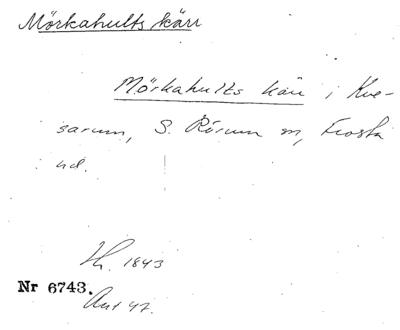 Mörkahults kärr
Mörkahults kärr i Kve-
sarum, S. Rörum sn, Frosta
hd.
1843
Nr 6743.
47.